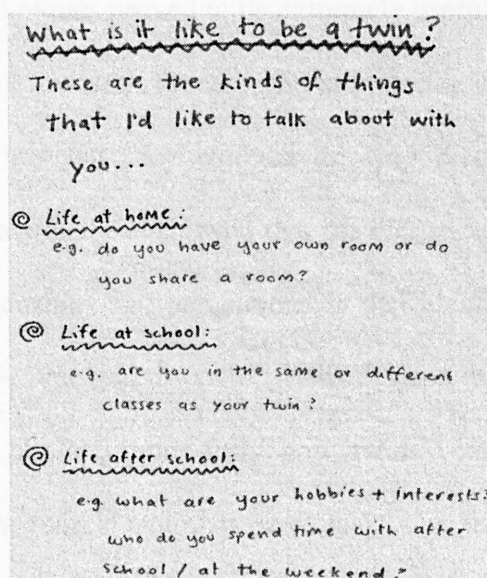 What is it like to be a twin?
These are the kinds of things
that I'd like to talk about with
you...
Life at home:
e.g. do you have your own room or do
you share a room?
Life at school:
e.g. are you in the same or different
classes as your twin?
Life after school:
e.g. what are your hobbies + interests?
who do you spend time with after
school / at the weekend?